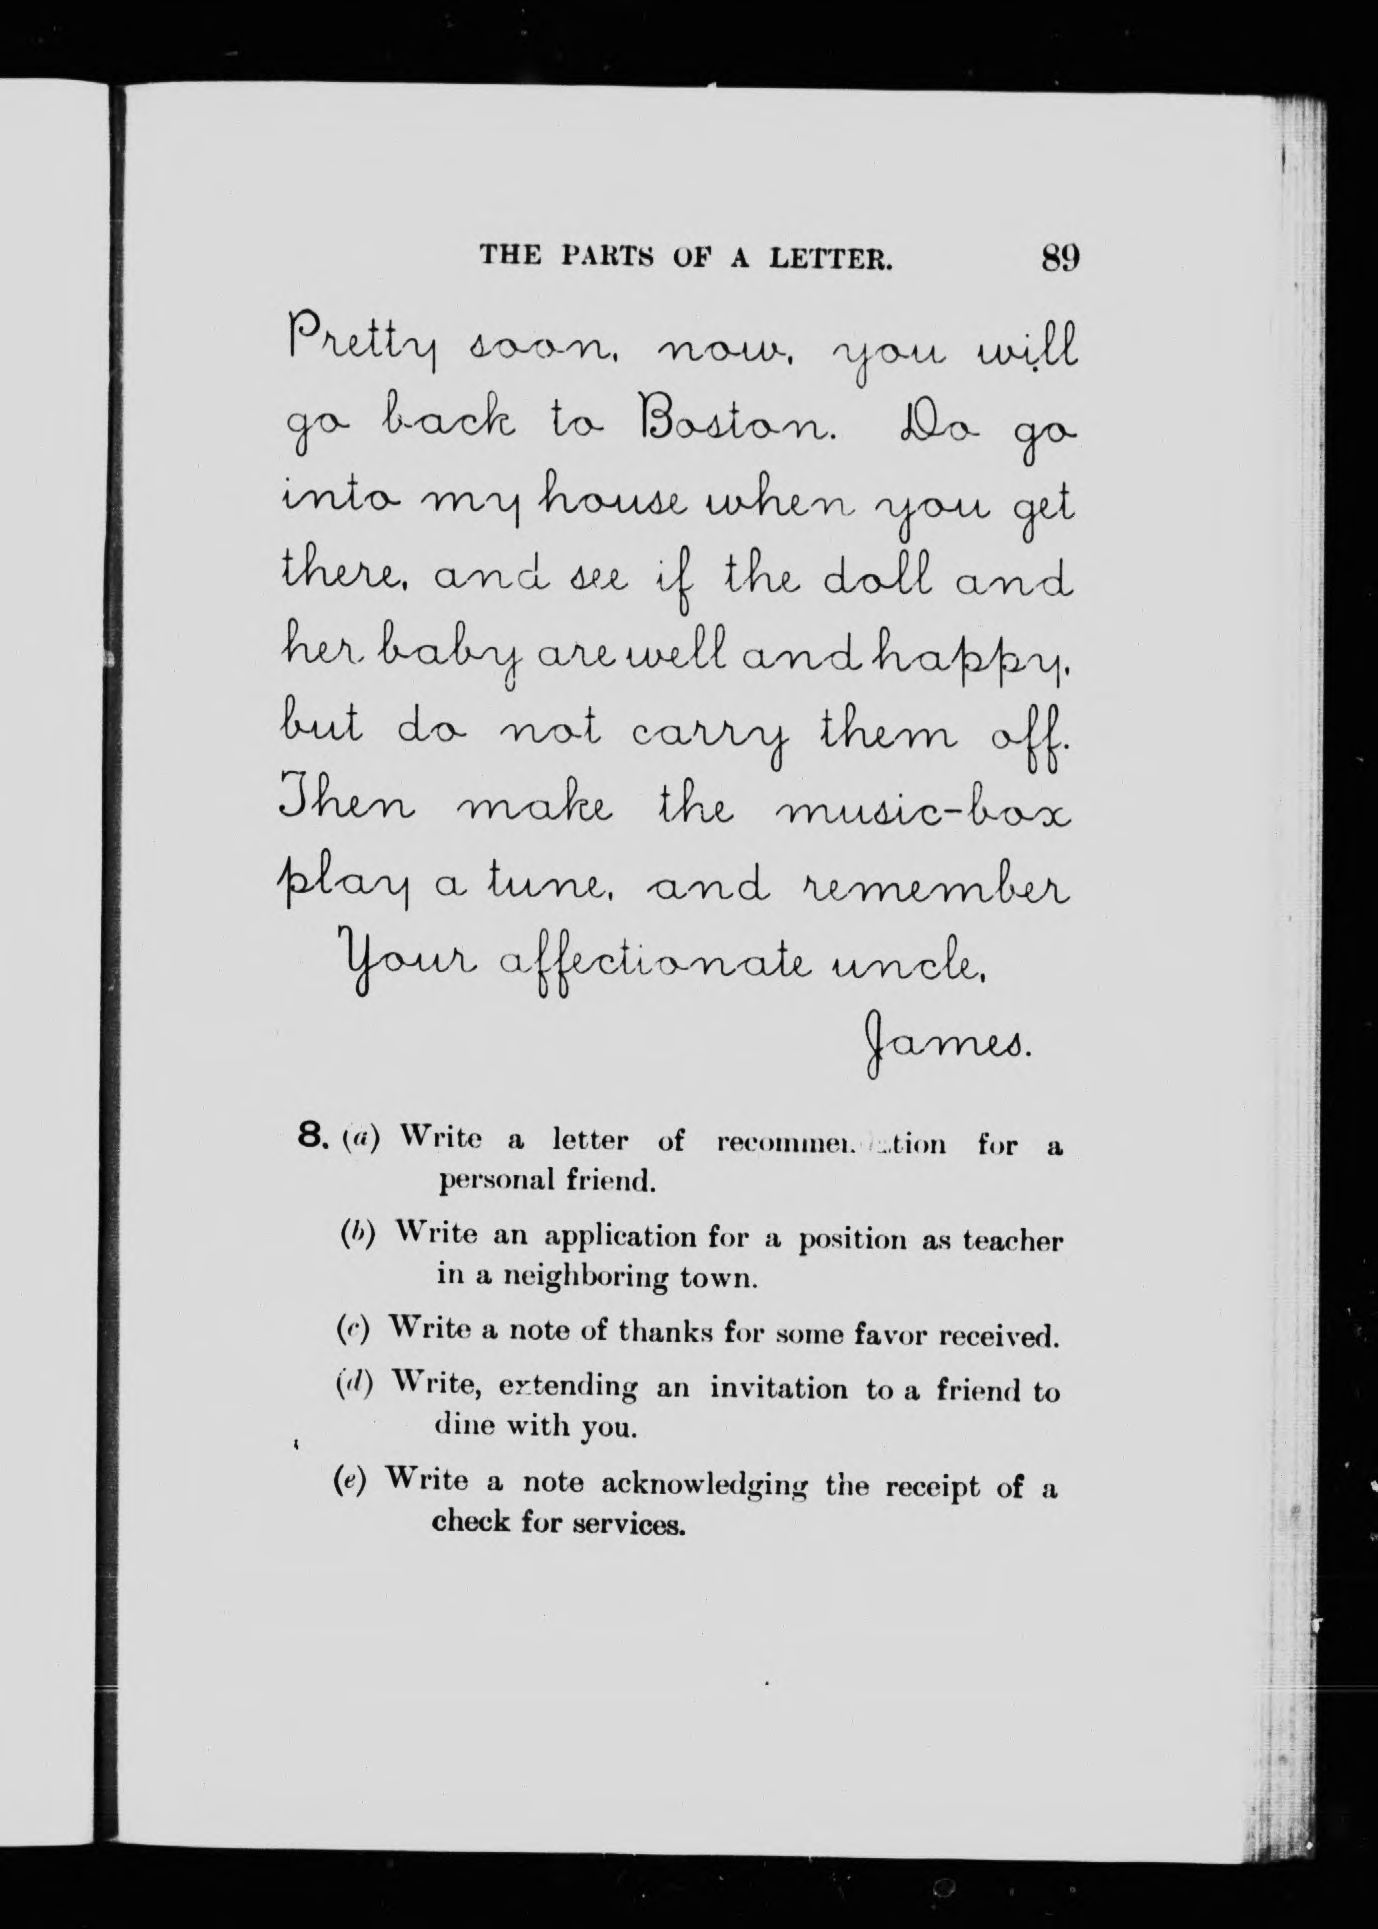 THE PARTS OF A LETTER. 89
Pretty soon, now, you will
go back to Boston. Do go
into my house when you get
there, and see if the doll and
her baby are well and happy,
but do not carry them off.
Then make the music-box
play a tune, and remember
Your affectionate uncle,
James.
8. (a) Write a letter of for a
personal friend.
(b) Write an application for a position as teacher
in a neighboring town.
(c) Write a note of thanks for some favor received.
(d) Write, extending an invitation to a friend to
dine with you.
(e) Write a note acknowledging the receipt of a
check for services.